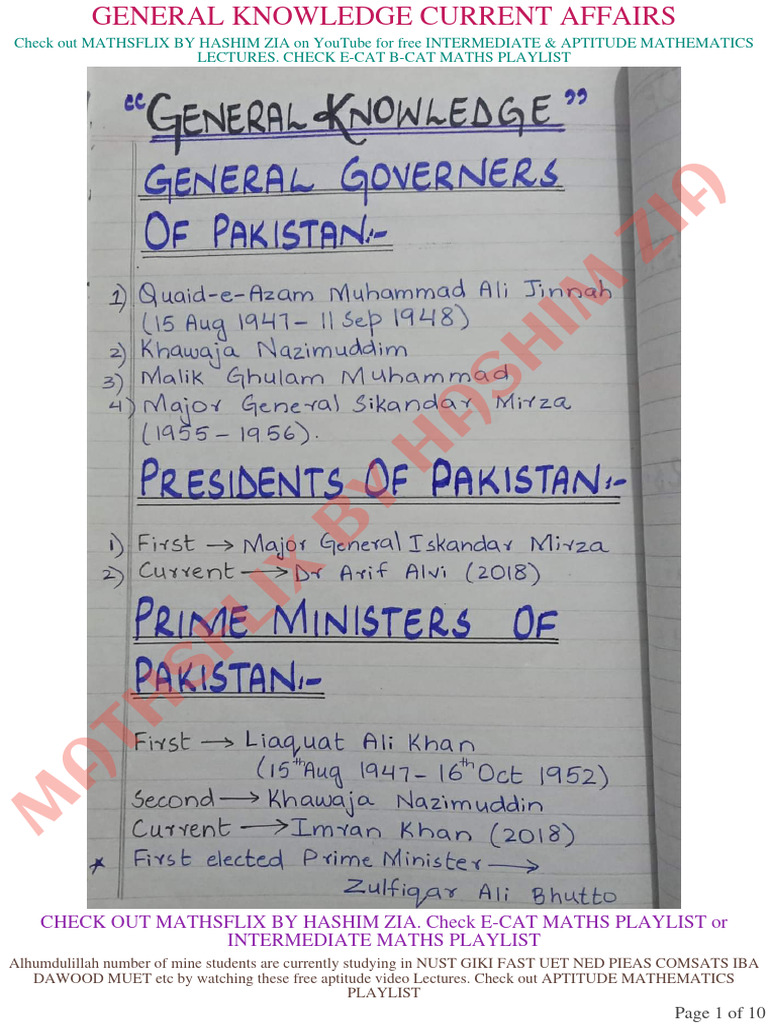 GENERAL KNOWLEDGE CURRENT AFFAIRS
Check out MATHSFLIX BY HASHIM ZIA on YouTube for free INTERMEDIATE & APTITUDE MATHEMATICS
LECTURES. CHECK E-CAT B-CAT MATHS PLAYLIST
“GENERAL KNOWLEDGE”
GENERAL GOVERNERS
OF PAKISTAN:-
1) Quaid-e-Azam Muhammad Ali Jinnah
(15 Aug 1947 - 11 Sep 1948)
2) Khawaja Nazimuddim
3) Malik Ghulam Muhammad
4) Major General Sikandar Mirza
(1955 - 1956).
PRESIDENTS OF PAKISTAN:-
1) First → Major General Iskandar Mirza
2) Current → Dr Arif Alvi (2018)
PRIME MINISTERS OF
PAKISTAN:-
First → Liaquat Ali Khan
(15th Aug 1947 - 16th Oct 1952)
Second → Khawaja Nazimuddin
Current → Imran Khan (2018)
* First elected Prime Minister →
Zulfiqar Ali Bhutto
MATHSFLIX BY HASHIM ZIA
CHECK OUT MATHSFLIX BY HASHIM ZIA. Check E-CAT MATHS PLAYLIST or
INTERMEDIATE MATHS PLAYLIST
Alhumdulillah number of mine students are currently studying in NUST GIKI FAST UET NED PIEAS COMSATS IBA
DAWOOD MUET etc by watching these free aptitude video Lectures. Check out APTITUDE MATHEMATICS
PLAYLIST
Page 1 of 10